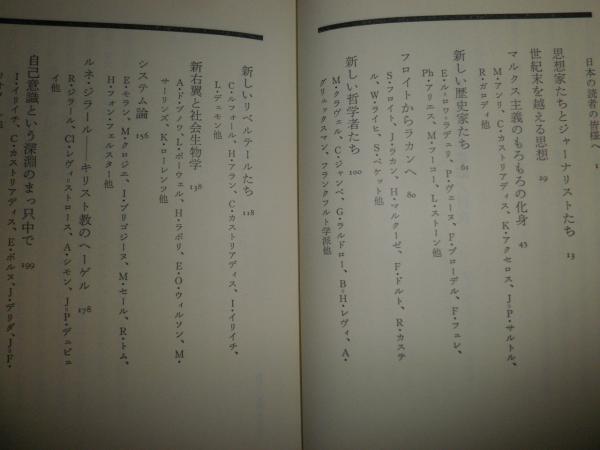 日本の読者の皆様へ 1
思想家たちとジャーナリストたち 13
世紀末を越える思想 29
マルクス主義のもろもろの化身 43
M・アンリ、C・カストリアディス、K・アクセロス、J=P・サルトル、
R・ガロディ他
新しい歴史家たち 61
E・ル=ロワ=ラデュリ、P・ヴェーヌ、F・ブローデル、F・フュレ、
Ph・アリエス、M・フーコー、L・ストーン他
フロイトからラカンへ 80
S・フロイト、J・ラカン、H・マルクーゼ、F・ドルト、R・カステ
ル、W・ライヒ、S・ベケット他
新しい哲学者たち 100
M・クラヴェル、C・ジャンベ、G・ラルドロー、B=H・レヴィ、A・
グリュックスマン、フランクフルト学派他
新しいリベルテールたち 118
C・ルフォール、H・アラン、C・カストリアディス、I・イリイチ、
L・デュモン他
新右翼と社会生物学 138
A・ド・ブノワ、L・ポーウェル、H・ラボリ、E・O・ウィルソン、M・
サーリンズ、K・ローレンツ他
システム論 156
E・モラン、M・クロジエ、I・プリゴジーヌ、M・セール、R・トム、
H・フォン・フェルスター他
ルネ・ジラール――キリスト教のヘーゲル 178
R・ジラール、Cl・レヴィ=ストロース、A・シモン、J=P・デュピュ
イ他
自己意識という深淵のまっ只中で 199
I・イリイチ、C・カストリアディス、E・ボルヌ、J・デリダ、J=F・